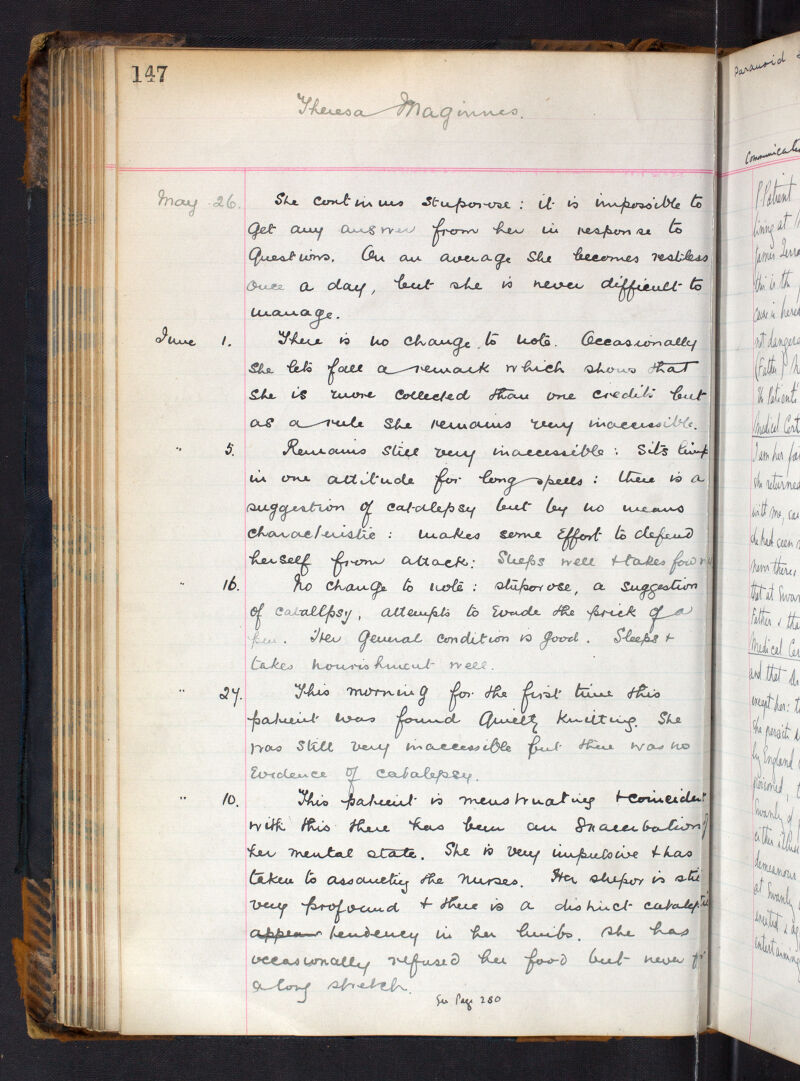 147
Theresa Maginnes.
May 26. She continues stuporose: it is impossible to
get any answer from her in response to
Questions. On an average She becomes restless
once a day, but she is never difficult to
manage.
June 1. There is no change to note. Occasionally
She lets fall a remark which shows that
She is more collected than one credits but
as a rule She remains very inaccessible.
" 5. Remains still very inaccessible: Sits limp
in one attitude for long spells: there is a
suggestion of catalepsy but by no means
characteristic: makes some Effort to defend
herself from attack: Sleeps well & takes food
" 16. No change to note: stuporose, a suggestion
of catallpsy, attempts to Evade the prick of a
pin. Her General condition is good. Sleeps &
takes nourishment well.
" 24. This morning for the first time this
patient was found Quietly Knitting. She
was still very inaccessible but there was no
Evidence of catalepsy.
" 10. This patient is menstruating & coincident
with this there has been an Exacerbation of
her mental state. She is very impulsive & has
taken to assaulting the nurses. Her stupor is still
very profound & there is a distinct cataleptic
appear tendency in her limbs. She has
occasionally refused her food but never for
a long stretch.
See Page 280
Paranoid
Communicated
Patient
living at
James
this is the
Case is
not dangerous
(Father)
the Patient's
Medical Cert
I am her
she returned
with me,
she had seen
were there
that at Swan
Father & tha
Medical Cer
and that
except her:
She persists
by England
poisoned,
Swanly of
either
demeanour
at Swanly
excited &
entertaining